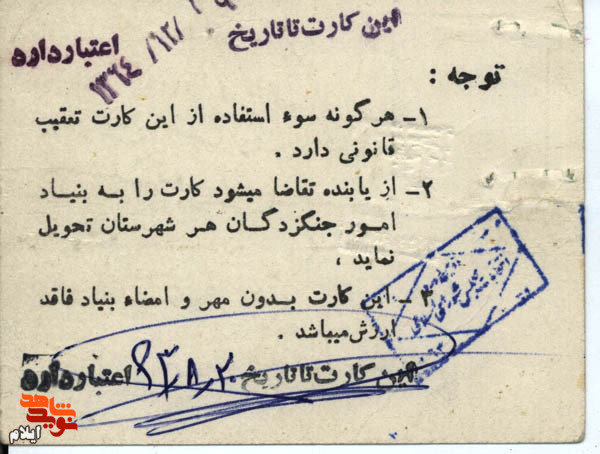 این کارت تا تاریخ ۱۳۶۴/۱۲/ اعتبار دارد
توجه :
۱- هرگونه سوء استفاده از این کارت تعقیب
قانونی دارد .
۲- از یابنده تقاضا میشود کارت را به بنیاد
امور جنگزدگان هر شهرستان تحویل
نماید ،
۳- این کارت بدون مهر و امضاء بنیاد فاقد
ارزش میباشد .
این کارت تا تاریخ ۶۳٫۸٫۳۰ اعتبار دارد
نوید شاهد
ایلام